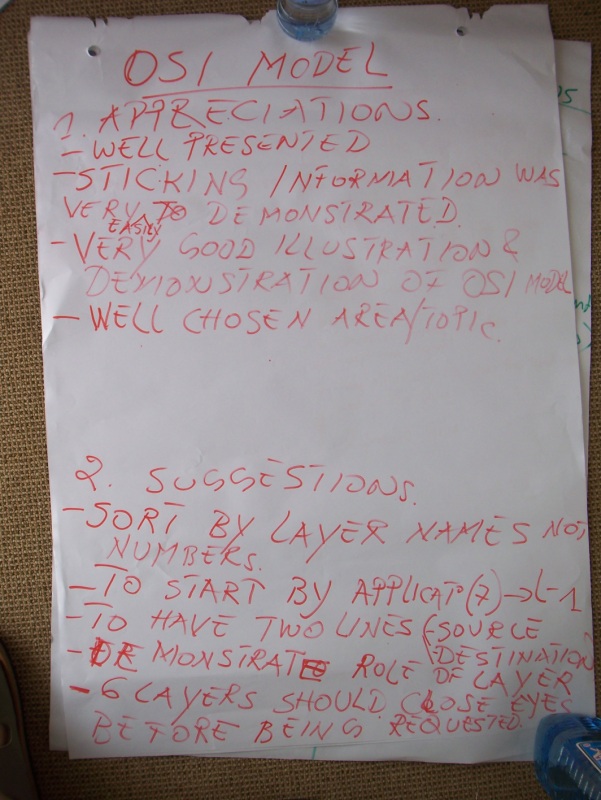 OSI MODEL
1. APPRECIATIONS.
- WELL PRESENTED
- STICKING INFORMATION WAS
VERY EASILY TO DEMONSTRATED.
- VERY GOOD ILLUSTRATION &
DEMONSTRATION OF OSI MODEL
- WELL CHOSEN AREA/TOPIC.
2. SUGGESTIONS.
- SORT BY LAYER NAMES NOT
NUMBERS.
- TO START BY APPLICAT(7)→L-1
- TO HAVE TWO LINES (SOURCE
DESTINATION
- DEMONSTRATE ROLE OF LAYER
- 6 LAYERS SHOULD CLOSE EYES
BEFORE BEING REQUESTED.